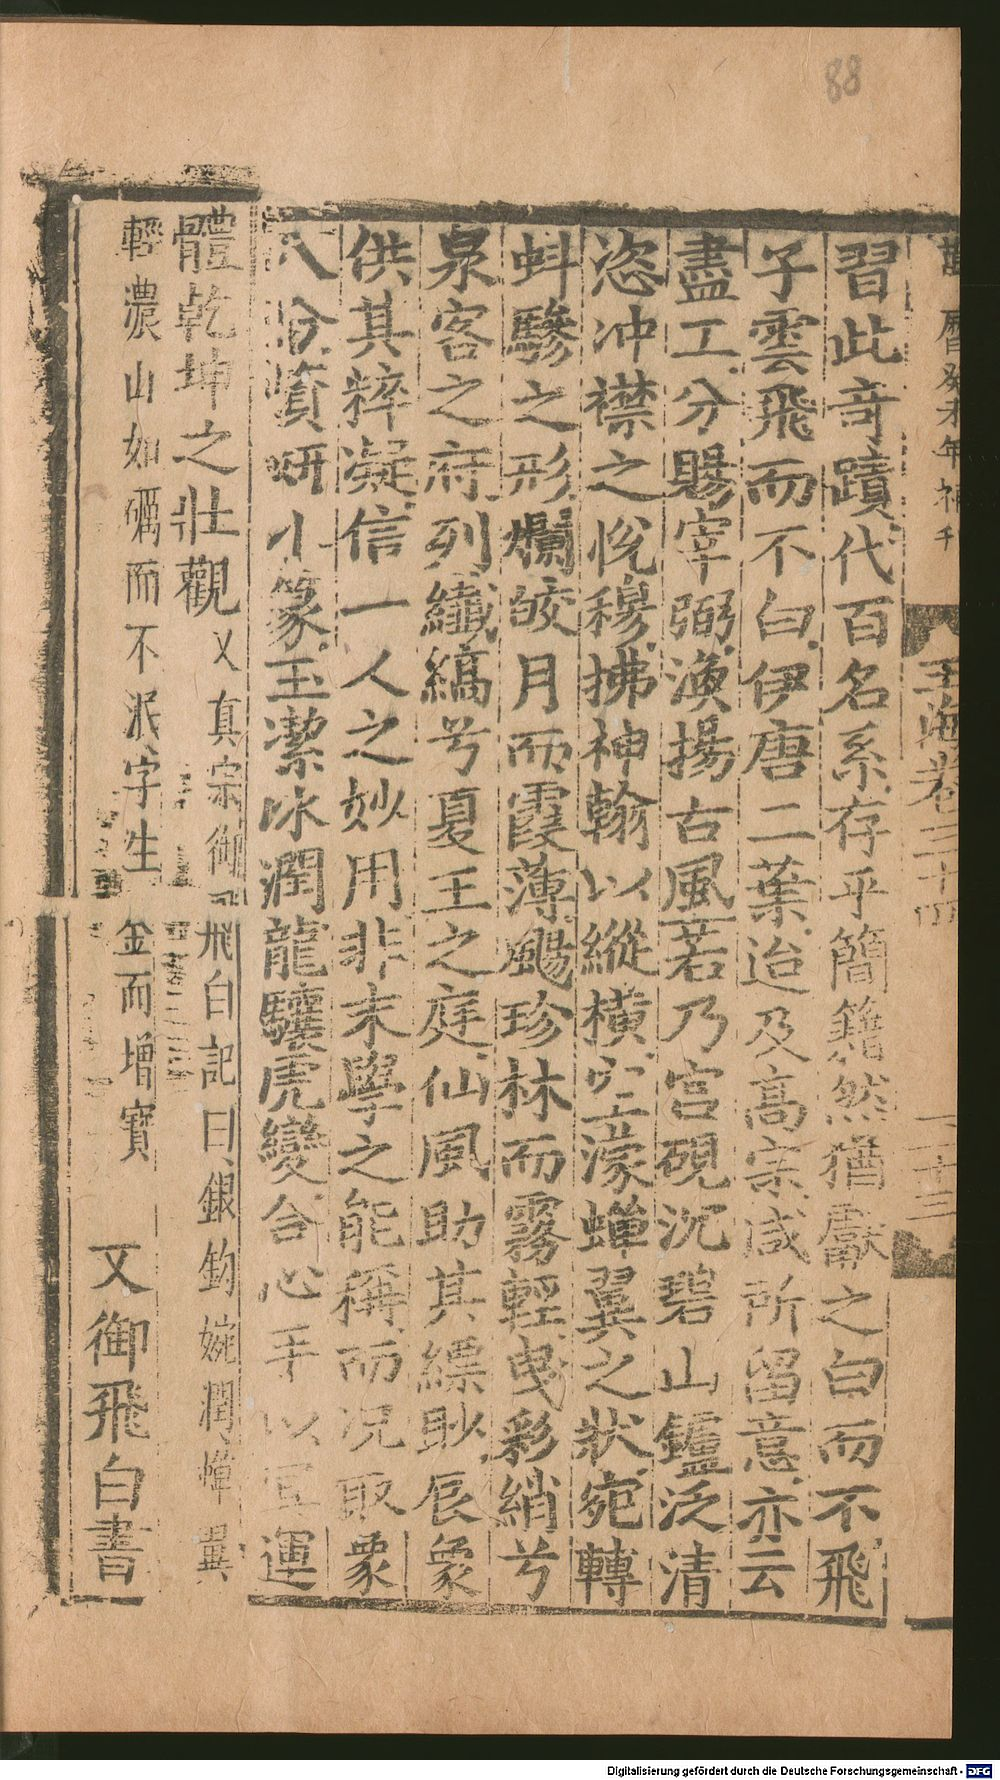 88
萬曆癸未年補刊
玉海卷三十四
三十三
習此奇蹟代百名系存乎簡籍然猶獻之白而不飛
子雲飛而不白伊唐二葉迨及高宗咸所留意亦云
盡工分賜宰弼渙揚古風若乃宫硯沉碧山鑪泛清
恣冲襟之恱穆拂神翰以縱橫空濛蟬翼之狀宛轉
蚪驂之形爛皎月而霞薄颺珍林而霧輕曳彩綃兮
泉客之府列纖縞兮夏王之庭仙風助其縹眇辰象
供其粹凝信一人之妙用非末學之能稱而况取象
八分資妍小篆玉潔冰潤龍驤虎變合心手以冥運
體乾坤之壯觀又真宗御飛白記曰銀鈎婉潤蟬翼
輕濃山如礪而不泯字生金而增寳 又御飛白書
Digitalisierung gefördert durch die Deutsche Forschungsgemeinschaft - DFG